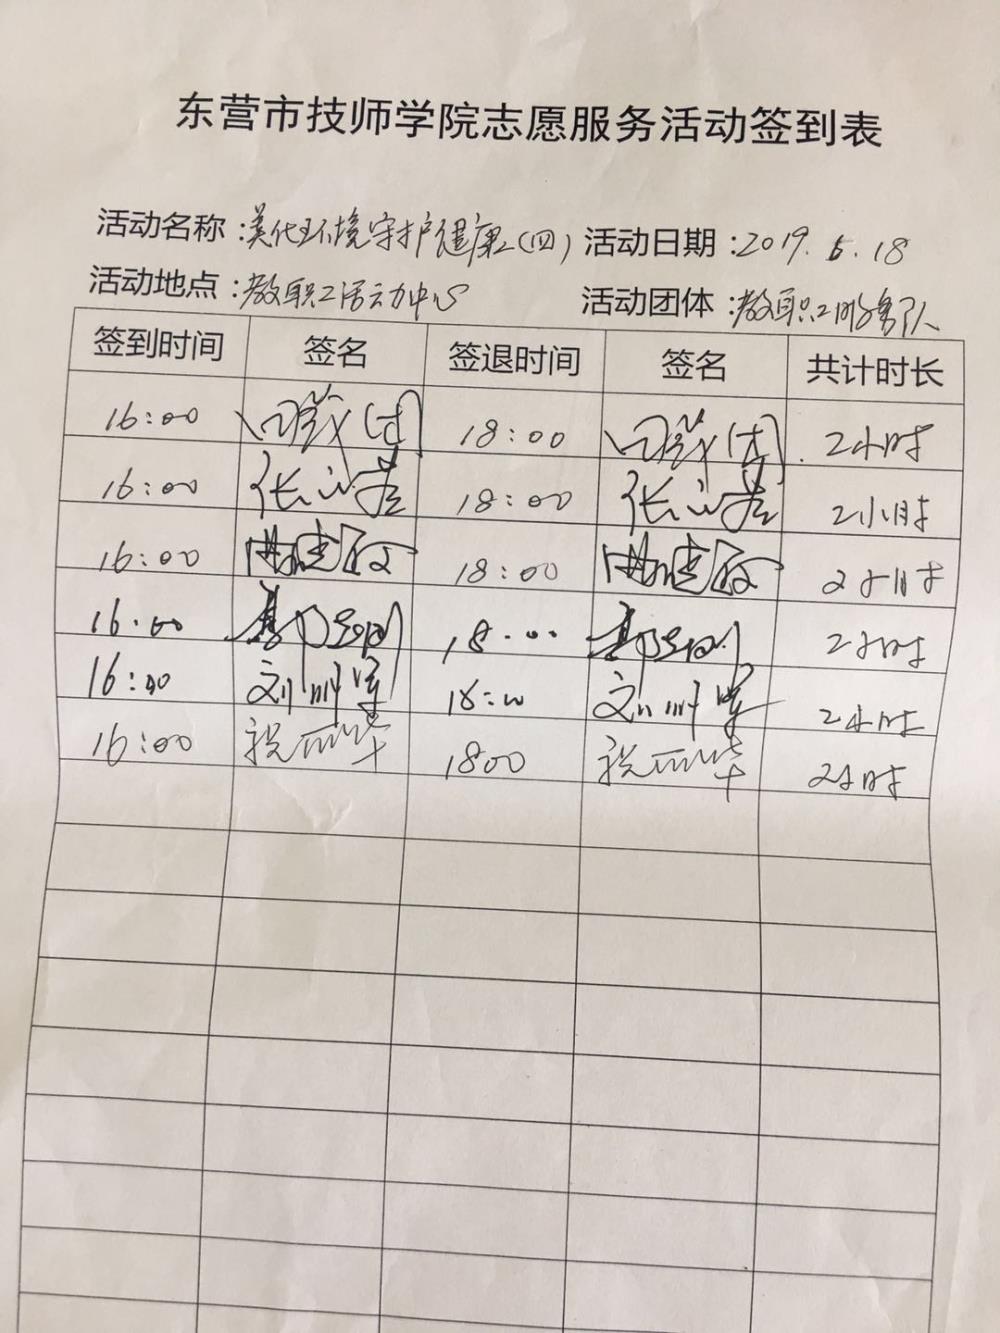 东营市技师学院志愿服务活动签到表
活动名称：美化环境守护健康（四） 活动日期：2019.5.18
活动地点：教职工活动中心 活动团体：教职工服务队
签到时间 签名 签退时间 签名 共计时长
16:00 18:00 2小时
16:00 张 18:00 张 2小时
16:00 18:00 2小时
16:00 郭 18:00 郭 2小时
16:00 刘 军 18:00 刘 军 2小时
16:00 祝丽华 1800 祝丽华 2小时